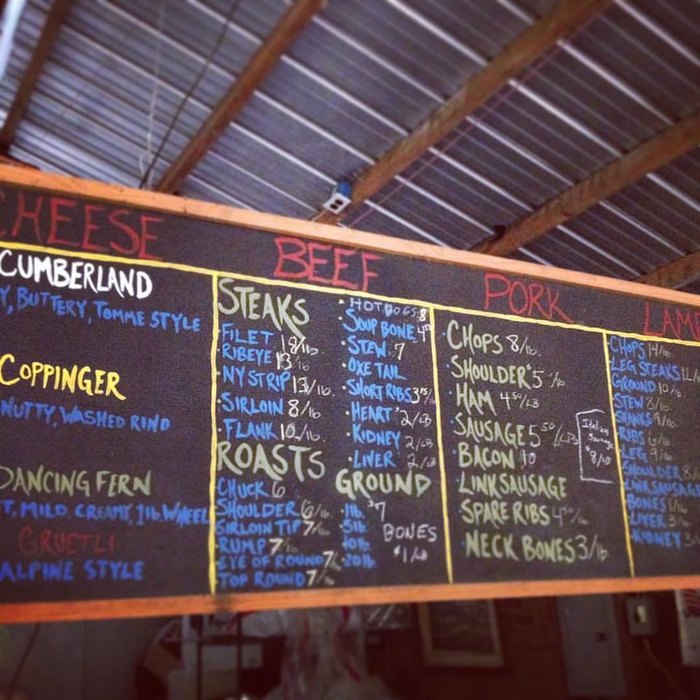 CHEESE
CUMBERLAND
Y, BUTTERY, TOMME STYLE
COPPINGER
NUTTY, WASHED RIND
DANCING FERN
T, MILD, CREAMY, 1 lb. WHEEL
GRUETLI
ALPINE STYLE
BEEF
STEAKS
FILET 18/lb.
RIBEYE 13/lb.
NY STRIP 13/lb.
SIRLOIN 8/lb
FLANK 10/lb.
ROASTS
CHUCK 6
SHOULDER 6/lb.
SIRLOIN TIP 7/lb
RUMP 7/lb
EYE OF ROUND 7/lb
TOP ROUND 7/lb
HOT DOGS 8
SOUP BONE
STEW 7
OXE TAIL
SHORT RIBS
HEART $2/LB
KIDNEY 2/LB
LIVER 2/LB
GROUND
1lb. $7
5lb
10lb
20lb
BONES
$1/LB
PORK
CHOPS 8/lb.
SHOULDER 5/lb
HAM 4.50/LB
SAUSAGE 5.50/LB
BACON 10
LINK SAUSAGE
SPARE RIBS 4.50/lb
NECK BONES 3/lb
Italian
Sausage
$9/LB
LAMB
CHOPS 14/lb.
LEG STEAKS
GROUND 10/lb
STEW 8/lb
SHANKS 9/lb
RIBS 6/lb
LEG 9/lb
SHOULDER
LINK SAUSAGE
BONES 1/lb
LIVER
KIDNEY